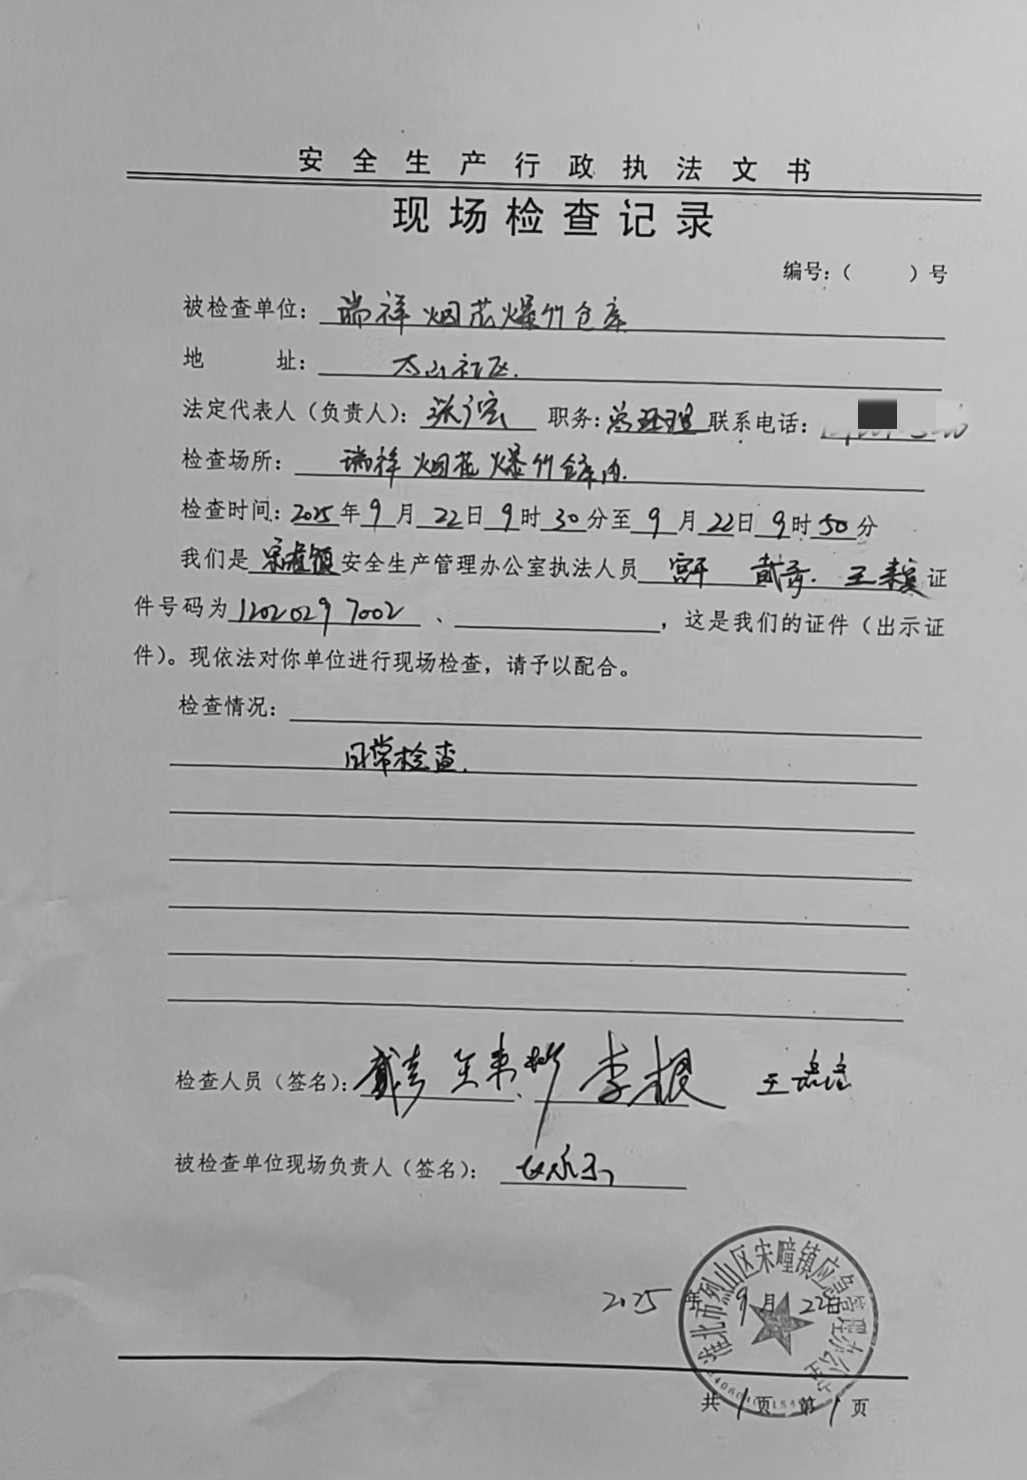 安全生产行政执法文书
现场检查记录
编号:（ ）号
被检查单位: 瑞祥烟花爆竹仓库
地 址: 太山社区.
法定代表人（负责人）: 职务: 总经理 联系电话:
检查场所: 瑞祥烟花爆竹仓库内.
检查时间: 2025年9月22日9时30分至9月22日9时50分
我们是宋疃镇安全生产管理办公室执法人员 证
件号码为12020297002 、 ，这是我们的证件（出示证
件）。现依法对你单位进行现场检查，请予以配合。
检查情况:
日常检查.
检查人员（签名）: 李根
被检查单位现场负责人（签名）:
淮北市烈山区宋疃镇应急管理办公室
2025年9月22日
共1页 第1页